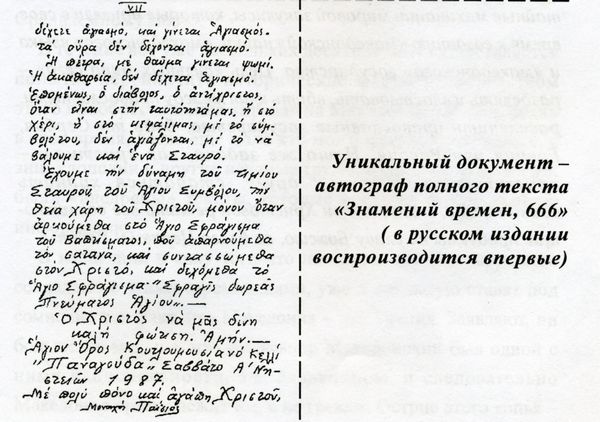 VII
δέχεται ἁγιασμό, καί γίνεται Ἁγιασμός.
τά οὖρα δέν δέχονται ἁγιασμό.
Ἡ πέτρα, μέ θαῦμα γίνεται ψωμί.
Ἡ ἀκαθαρσία, δέν δέχεται ἁγιασμό.
Ἑπομένως, ὁ διάβολος, ὁ ἀντίχριστος,
ὅταν εἶναι στήν ταυτότητάμας, ἤ στό
χέρι, ἤ στό κεφάλιμας, μέ τό σύμ-
βολότου, δέν ἁγιάζονται, μέ τό νά
βάζουμε καί ἕνα Σταυρό.
Ἔχουμε τήν δύναμη τοῦ τιμίου
Σταυροῦ τοῦ Ἁγίου Συμβόλου, τήν
Θεία χάρη τοῦ Χριστοῦ, μόνον ὅταν
ἀρκούμεθα στό Ἅγιο Σφράγισμα
τοῦ Βαπτίσματος, πού ἀπαρνούμεθα
τόν σατανᾶ, καί συντασσώμεθα
στόν Χριστό, καί δεχόμεθα τό
Ἅγιο Σφράγισμα "Σφραγίς δωρεᾶς
Πνεύματος Ἁγίου".—
Ὁ Χριστός νά μᾶς δίνη
καλή φώτιση. Ἀμήν.—
Ἅγιον Ὄρος Κουτλουμουσιανό Κελλί
"Παναγούδα" Σάββατο Α΄ Νη-
στειῶν 1987.
Μέ πολύ πόνο καί ἀγάπη Χριστοῦ,
Μοναχός Παΐσιος
Уникальный документ –
автограф полного текста
«Знамений времен, 666»
( в русском издании
воспроизводится впервые)